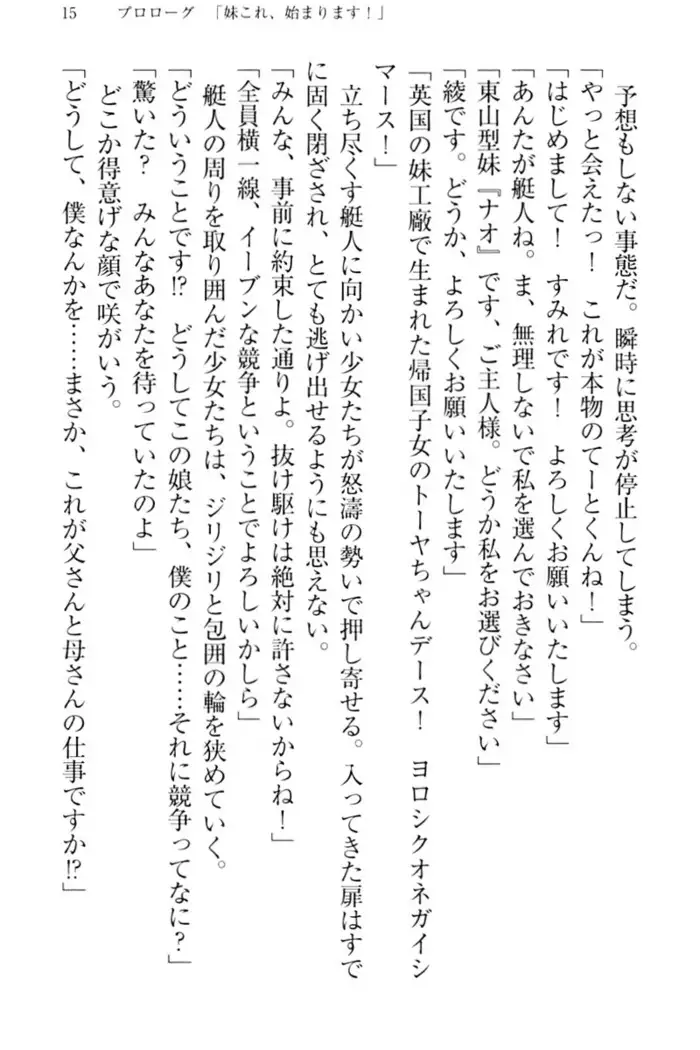 15　プロローグ　「妹これ、始まります！」
　予想もしない事態だ。瞬時に思考が停止してしまう。
「やっと会えたっ！　これが本物のてーとくんね！」
「はじめまして！　すみれです！　よろしくお願いいたします」
「あんたが艇人ね。ま、無理しないで私を選んでおきなさい」
「東山型妹『ナオ』です、ご主人様。どうか私をお選びください」
「綾です。どうか、よろしくお願いいたします」
「英国の妹工廠で生まれた帰国子女のトーヤちゃんデース！　ヨロシクオネガイシ
マース！」
　立ち尽くす艇人に向かい少女たちが怒濤の勢いで押し寄せる。入ってきた扉はすで
に固く閉ざされ、とても逃げ出せるようにも思えない。
「みんな、事前に約束した通りよ。抜け駆けは絶対に許さないからね！」
「全員横一線、イーブンな競争ということでよろしいかしら」
　艇人の周りを取り囲んだ少女たちは、ジリジリと包囲の輪を狭めていく。
「どういうことです!?　どうしてこの娘たち、僕のこと……それに競争ってなに？」
「驚いた？　みんなあなたを待っていたのよ」
　どこか得意げな顔で咲がいう。
「どうして、僕なんかを……まさか、これが父さんと母さんの仕事ですか!?」